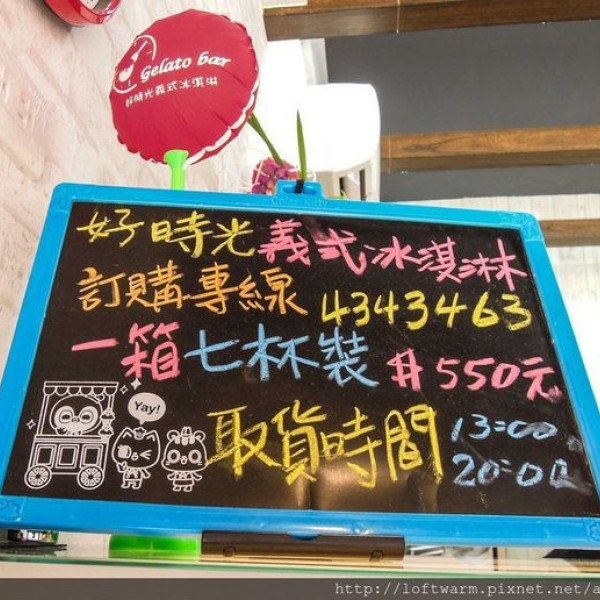 Gelato bar
好時光義式冰淇淋
好時光義式冰淇淋
訂購專線 4343463
一箱七杯裝 #550元
Yay!
取貨時間 13:00
20:00
http://loftwarm.pixnet.net/a